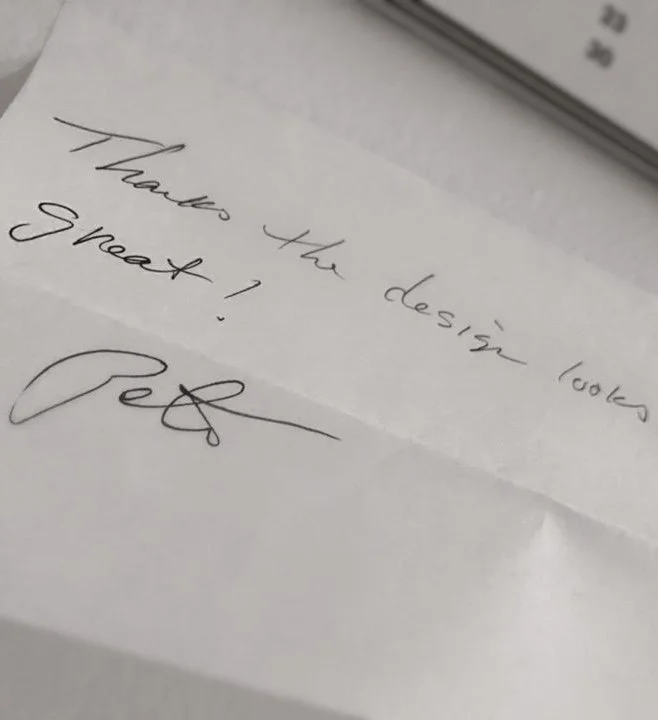 Thanks the design looks
great!
Pete
23
30